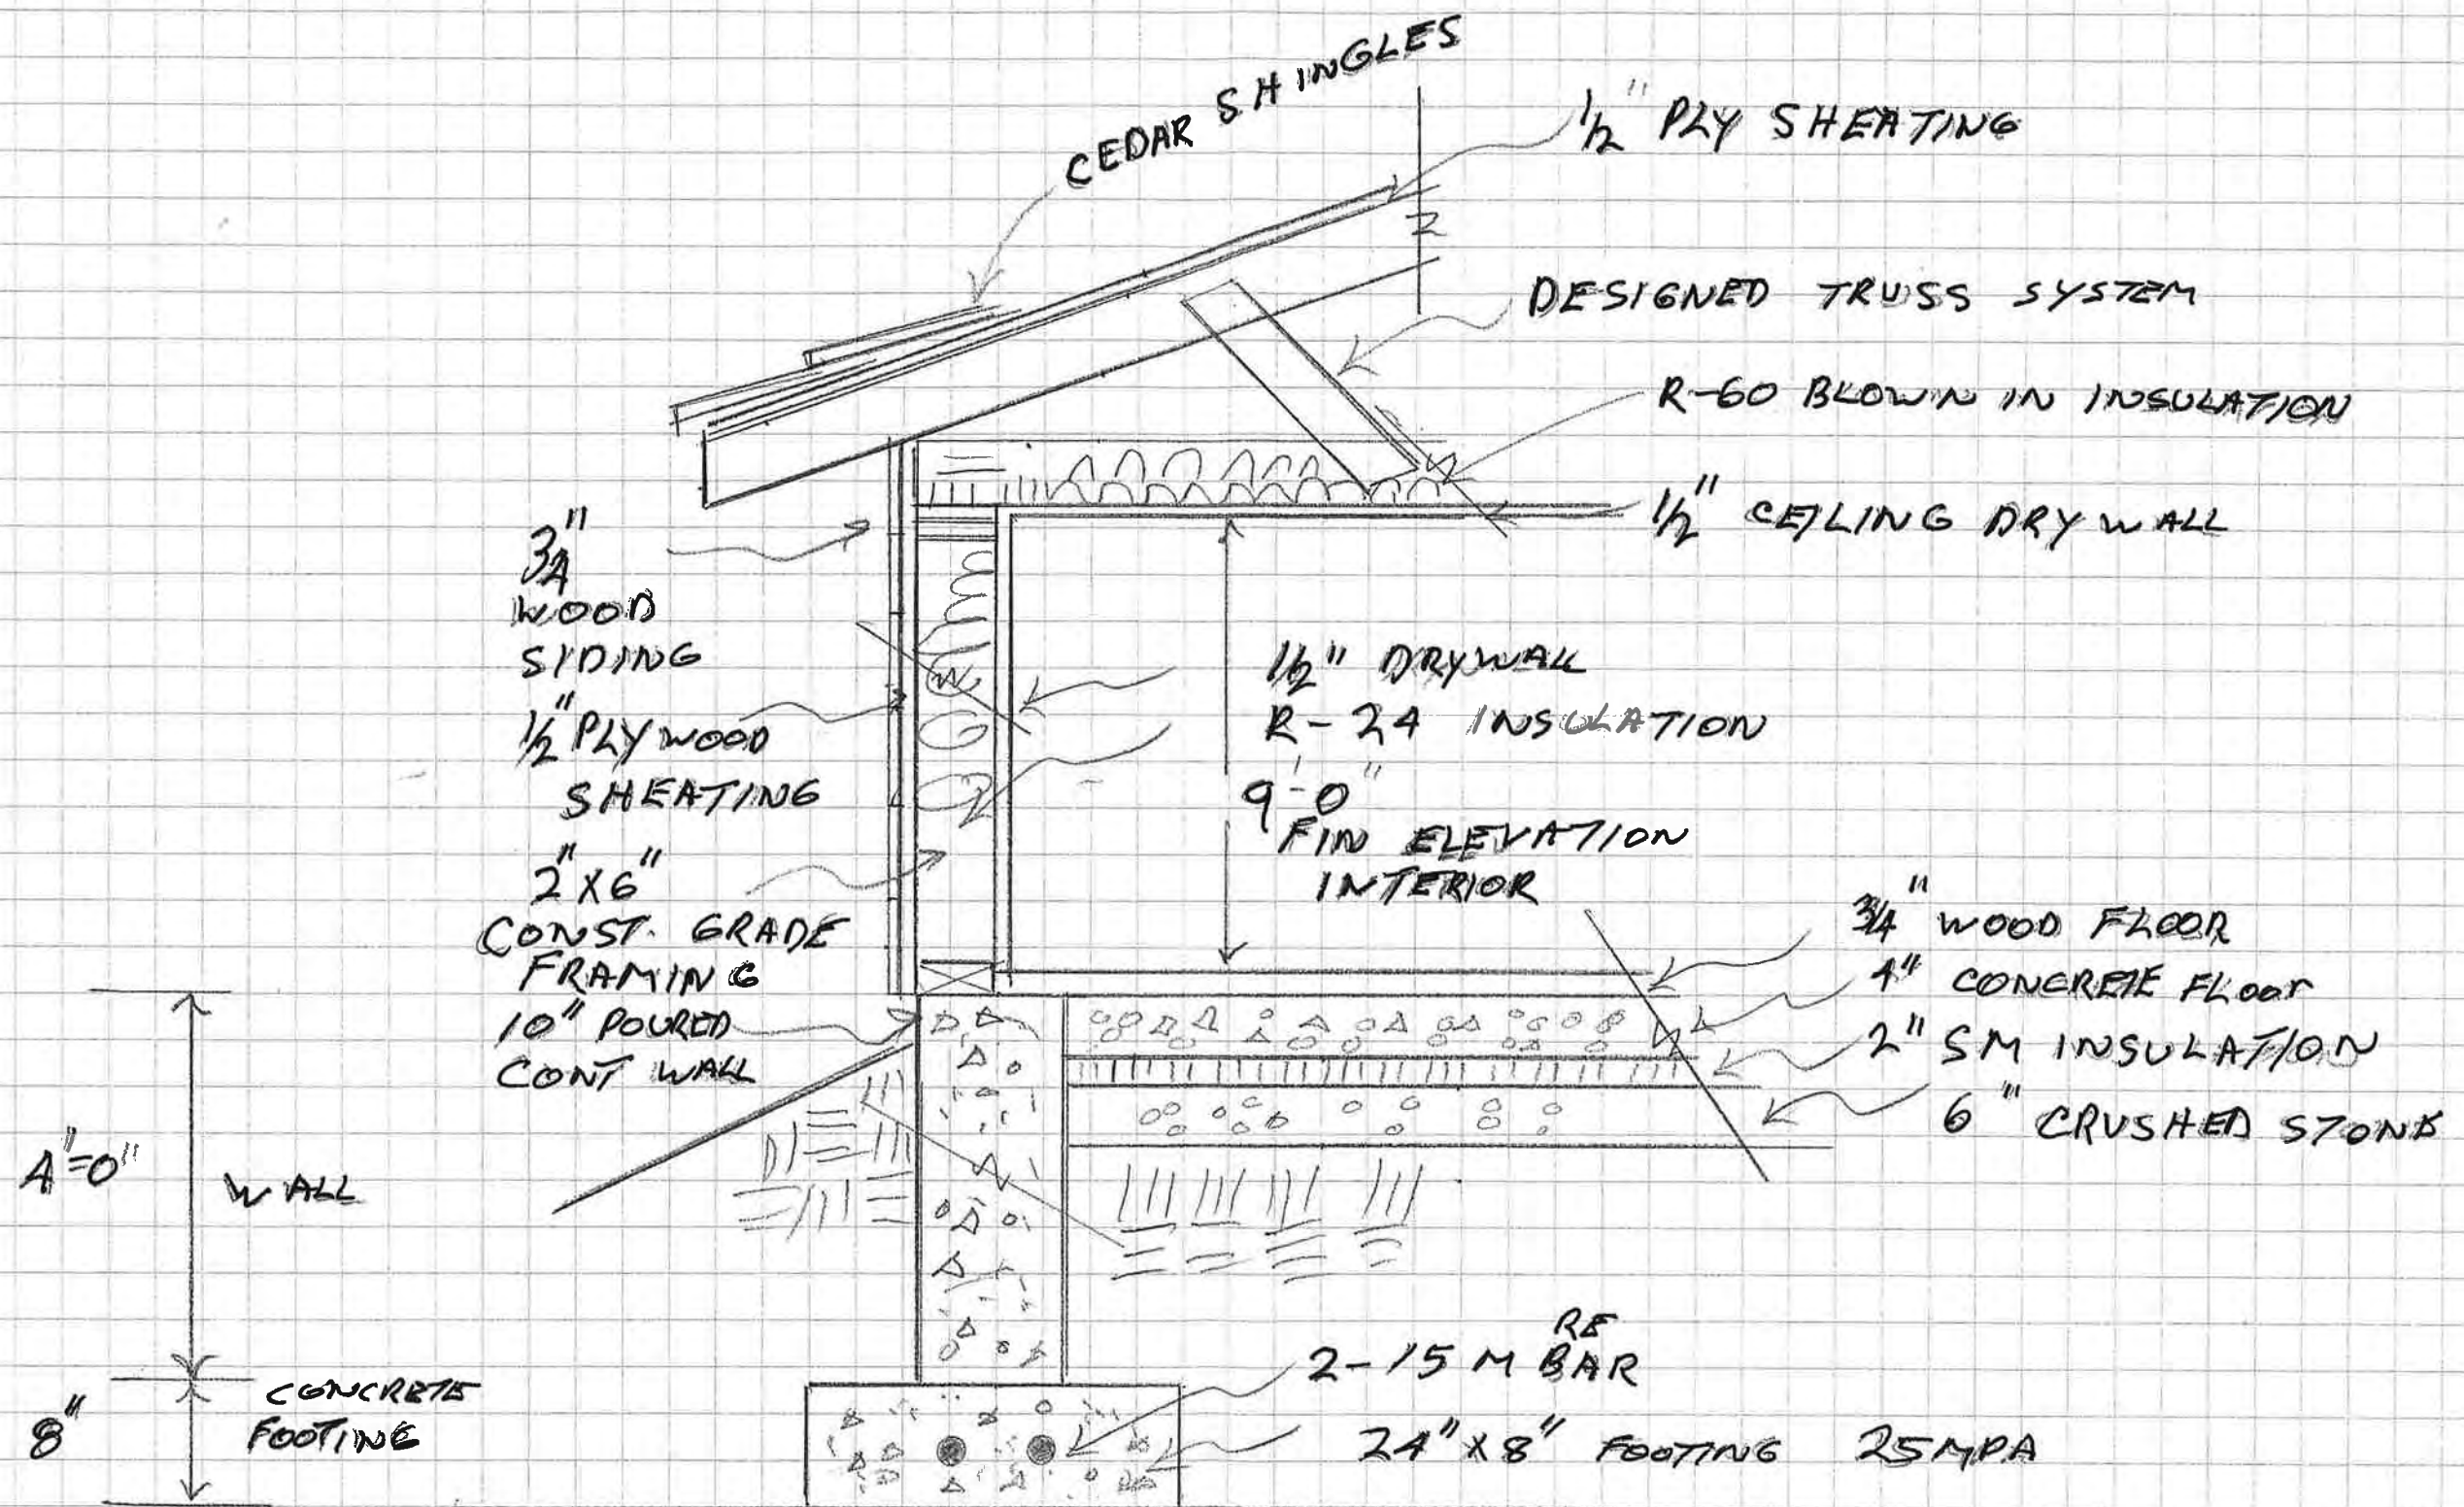 CEDAR SHINGLES
1/2" PLY SHEATING
DESIGNED TRUSS SYSTEM
R-60 BLOWN IN INSULATION
1/2" CEILING DRYWALL
3/4"
WOOD
SIDING
1/2" PLYWOOD
SHEATING
2"X6"
CONST. GRADE
FRAMING
10" POURED
CONT WALL
1/2" DRYWALL
R-24 INSULATION
9'-0"
FIN ELEVATION
INTERIOR
3/4" WOOD FLOOR
4" CONCRETE FLOOR
2" SM INSULATION
6" CRUSHED STONE
4"=0"
WALL
8"
CONCRETE
FOOTING
RE
2-15 M BAR
24"X8" FOOTING 25MPA